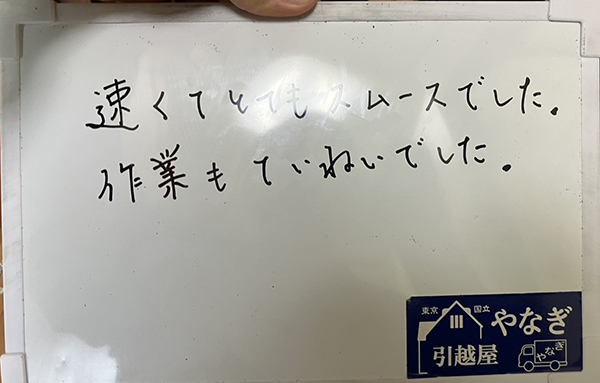 速くてとてもスムースでした。
作業もていねいでした。
東京 国立 やなぎ
引越屋 やなぎ